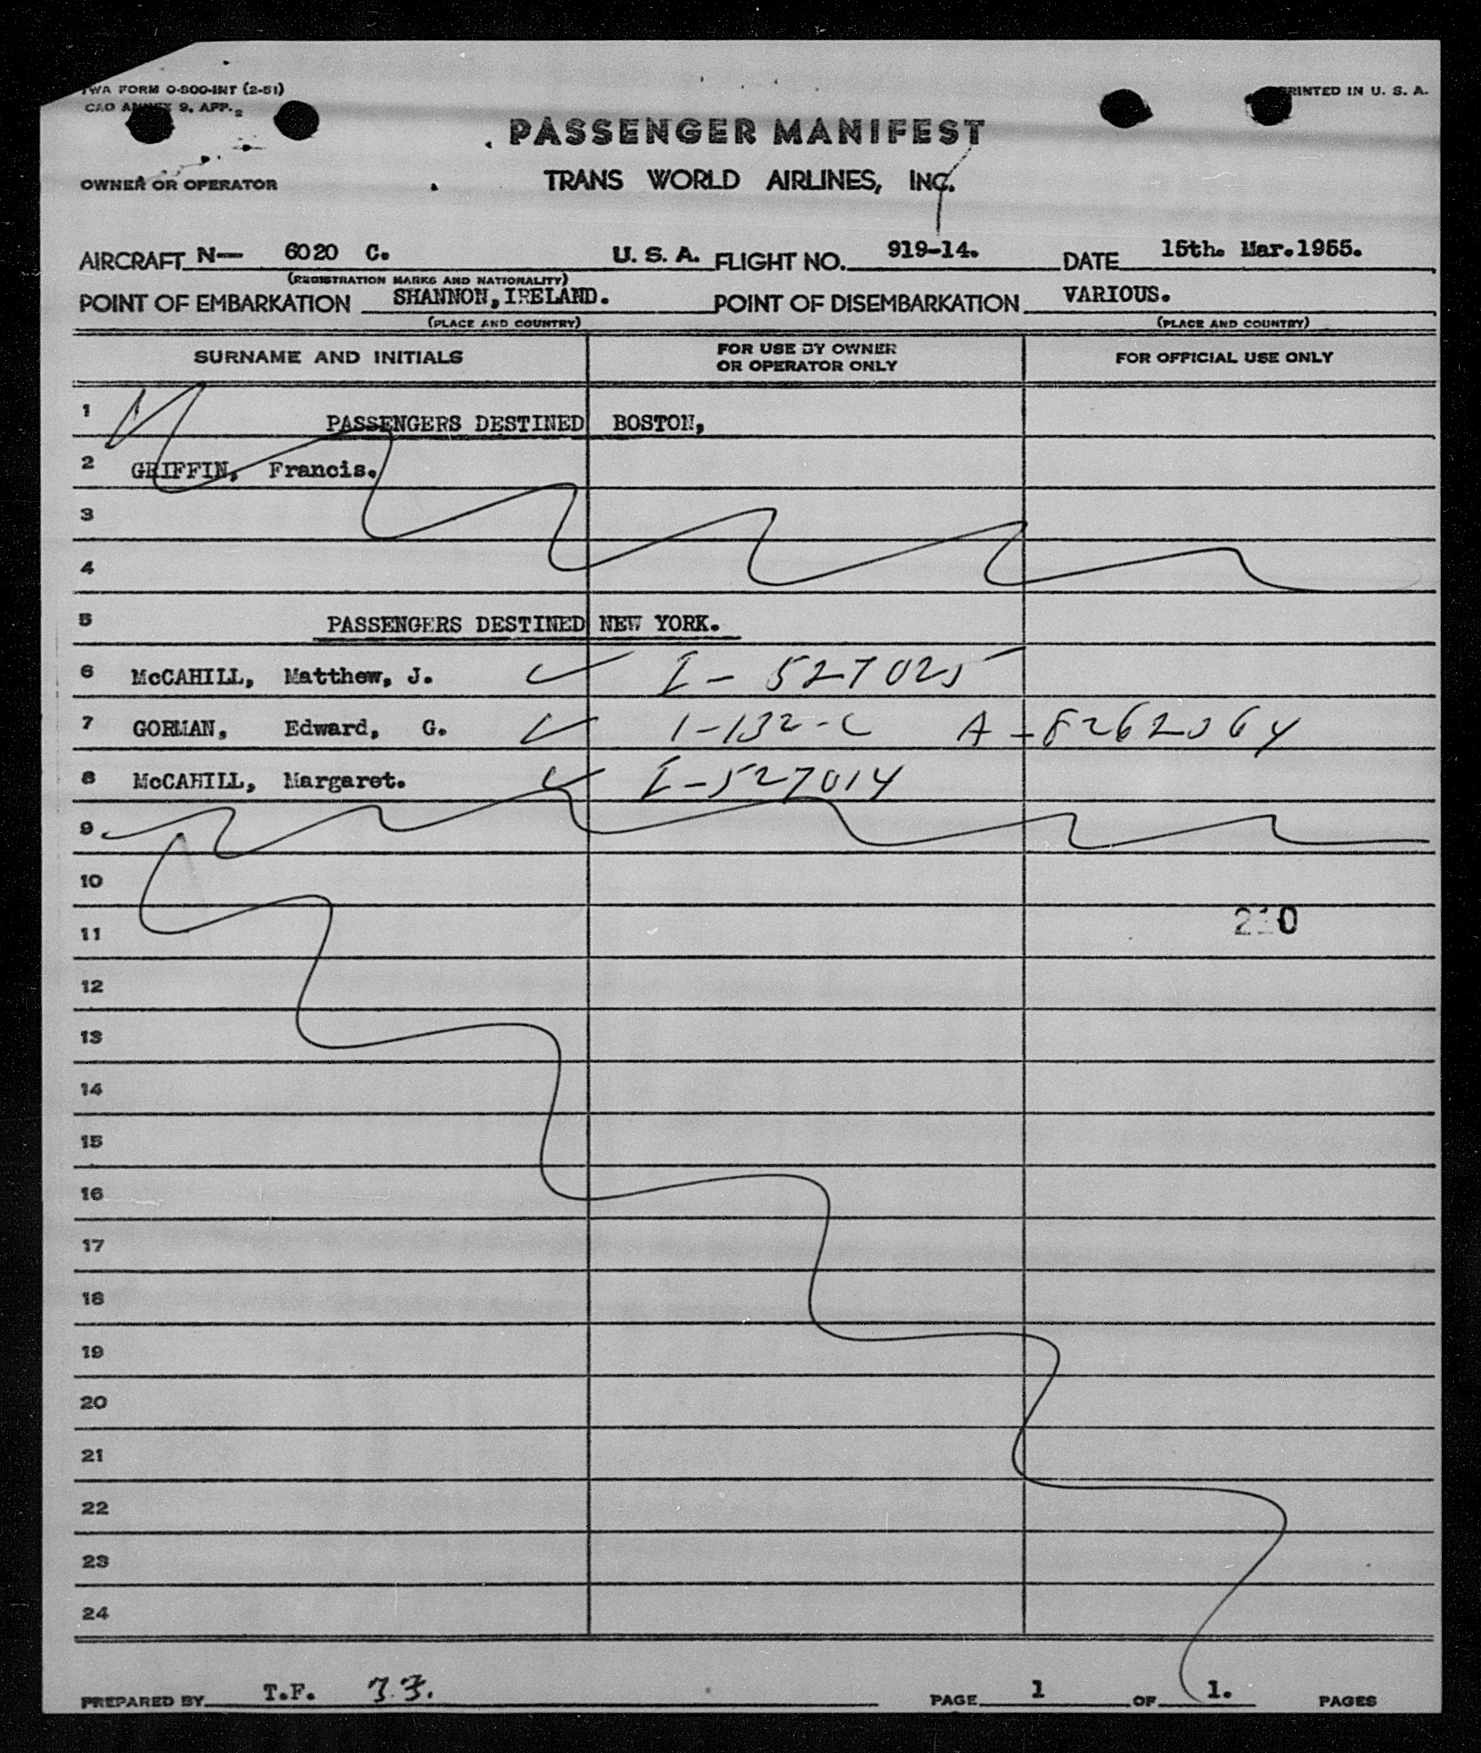 TWA FORM O-800-INT (2-51)
PRINTED IN U. S. A.
CAO ANNEX 9, APP. 2
PASSENGER MANIFEST
OWNER OR OPERATOR
TRANS WORLD AIRLINES, INC.
AIRCRAFT N— 6020 C. U. S. A. FLIGHT NO. 919-14. DATE 15th. Mar.1955.
(REGISTRATION MARKS AND NATIONALITY)
POINT OF EMBARKATION SHANNON, IRELAND. POINT OF DISEMBARKATION VARIOUS.
(PLACE AND COUNTRY) (PLACE AND COUNTRY)
SURNAME AND INITIALS FOR USE BY OWNER OR OPERATOR ONLY FOR OFFICIAL USE ONLY
1 PASSENGERS DESTINED BOSTON,
2 GRIFFIN, Francis.
3
4
5 PASSENGERS DESTINED NEW YORK.
6 McCAHILL, Matthew, J. I - 527025
7 GORMAN, Edward, G. 1-132-C A-8262064
8 McCAHILL, Margaret. I-527014
9
10
11 210
12
13
14
15
16
17
18
19
20
21
22
23
24
PREPARED BY T.F. T.F. PAGE 1 OF 1. PAGES